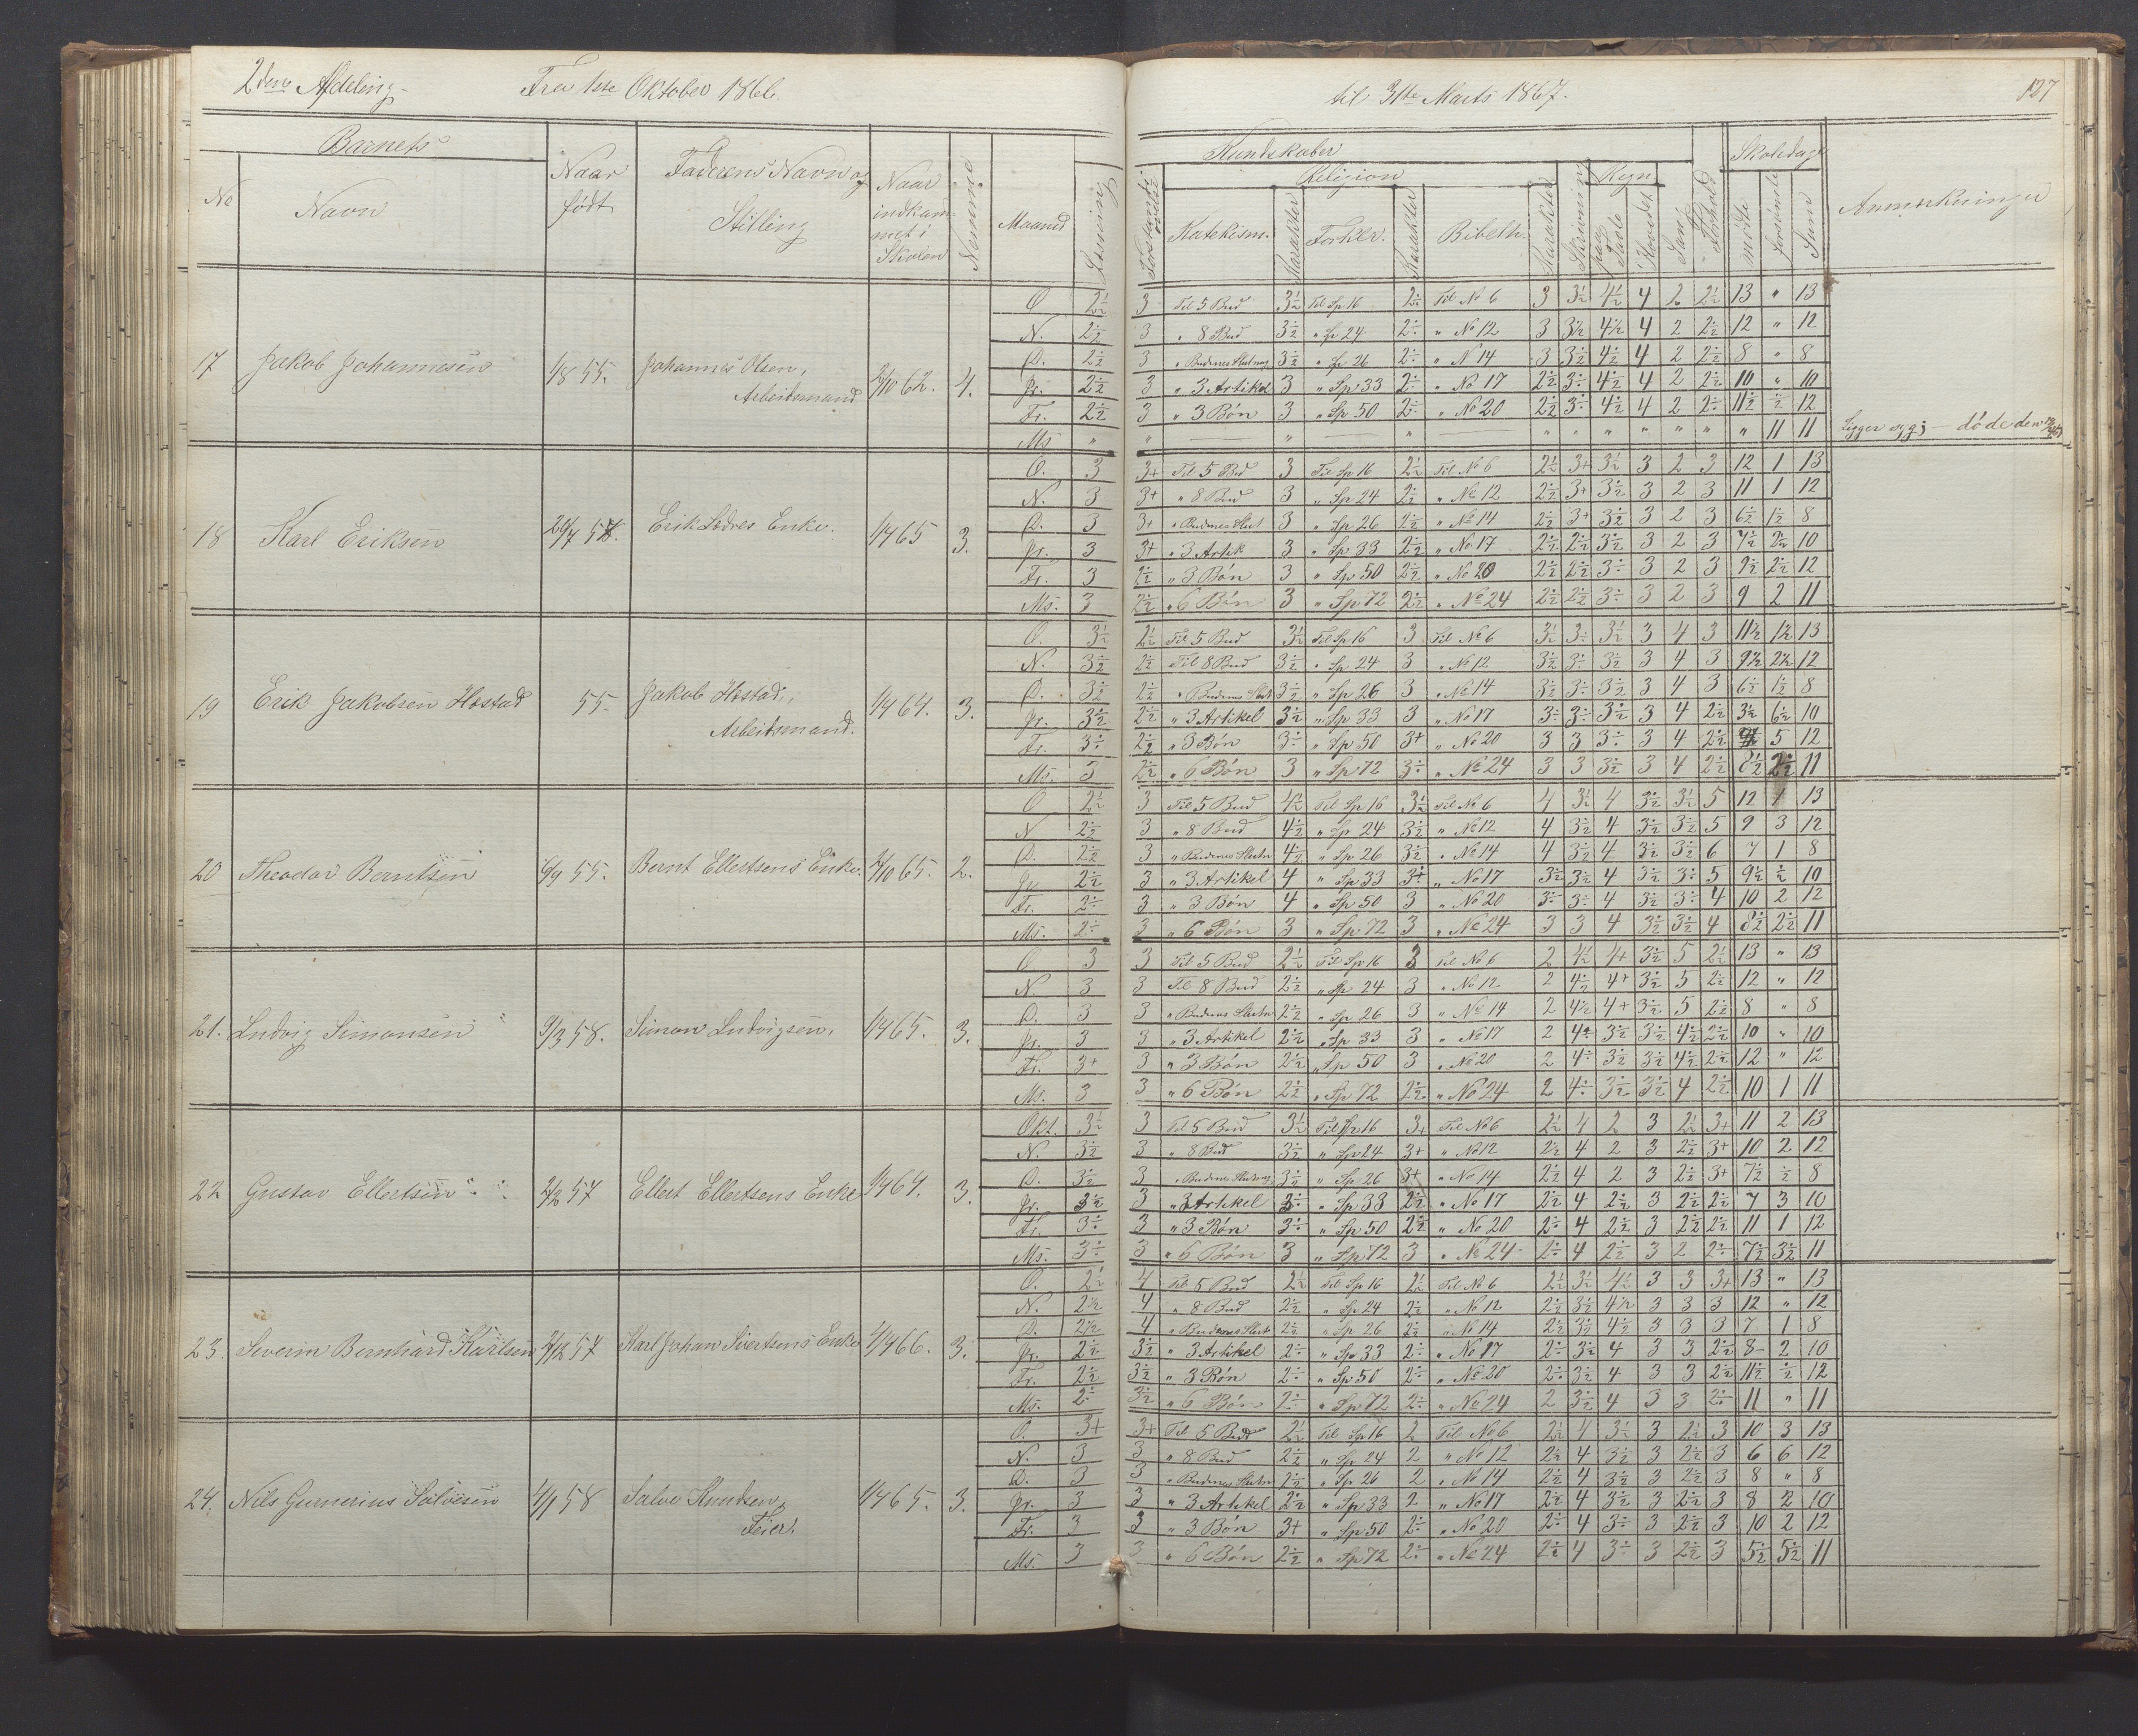 2den Afdeling. Fra 1ste Oktober 1866. til 31te Marts 1867. 127
Barnets Naar født Faderens Navn og Stilling Naar indkommet i Skolen Nemme Maaned Læsning Kundskaber Skoledage Anmærkninger
No Navn Religion Regn
Katekism. Karakter Forkler. Karakter Bibelh. Karakter Skrivning Tavle Hovedet Sang Forhold mödte forsömte Sum
17 Jakob Johannesen 1/8 55. Johannes Olsen, Arbeidsmand 62. 4.
O 2½ 3 Til 5 Bud 3½ Til Sp 16 2½ Til No 6 3 3½ 4½ 4 2 2½ 13 " 13
N. 2½ 3 " 8 Bud 3½ " Sp 24 2÷ " No 12 3 3½ 4½ 4 2 2½ 12 " 12
D. 2½ 3 " Budenes Slutning 3½ " Sp 26 2÷ " No 14 3 3½ 4½ 4 2 2½ 8 " 8
Jr. 2½ 3 " 3 Artikel 3 " Sp 33 2÷ " No 17 2½ 3÷ 4½ 4 2 2½ 10 " 10
Fr. 2½ 3 " 3 Bön 3 " Sp 50 2÷ " No 20 2½ 3÷ 4½ 4 2 2÷ 11½ ½ 12
Ms " " " " " " " " " " " 11 11 Ligger syg; – döde den
18 Karl Eriksen 29/7 57. Erik Lædres Enke. 1/4 65 3.
O. 3 3+ Til 5 Bud 3 Til Sp 16 2½ Til No 6 2½ 3+ 3½ 3 2 3 12 1 13
N. 3 3+ " 8 Bud 3 " Sp 24 2½ " No 12 2½ 3+ 3½ 3 2 3 11 1 12
D. 3 3+ " Budenes Slut 3 " Sp 26 2½ " No 14 2½ 3+ 3½ 3 2 3 6½ 1½ 8
Jr. 3 3+ " 3 Artik 3 " Sp 33 2½ " No 17 2½ 2½ 3½ 3 2 3 7½ 2½ 10
Fr. 3 2½ " 3 Bön 3 " Sp 50 2½ " No 20 2½ 2½ 3÷ 3 2 3 9½ 2½ 12
Ms. 3 2½ " 6 Bön 3 " Sp 72 2½ " No 24 2½ 2½ 3÷ 3 2 3 9 2 11
19 Erik Jakobsen Hostad 55 Jakob Hostad, Arbeidsmand. 1/4 64. 3.
O. 3½ 2½ Til 5 Bud 3½ Til Sp 16 3 Til No 6 3½ 3÷ 3½ 3 4 3 11½ 1½ 13
N. 3½ 2½ Til 8 Bud 3½ " Sp 24 3 " No 12 3½ 3÷ 3½ 3 4 3 9½ 2½ 12
D. 3½ 2½ " Budenes Slut 3½ " Sp 26 3 " No 14 3½ 3÷ 3½ 3 4 3 6½ 1½ 8
Jr. 3½ 2½ " 3 Artikel 3½ " Sp 33 3 " No 17 3÷ 3÷ 3½ 3 4 2½ 3½ 6½ 10
Fr. 3÷ 2½ " 3 Bön 3÷ " Sp 50 3+ " No 20 3 3 3÷ 3 4 2½ 5 12
Ms. 3 2½ " 6 Bön 3 " Sp 72 3÷ " No 24 3 3 3½ 3 4 2½ 8½ 2½ 11
20 Theodor Berntsen 6/9 55. Bernt Ellertsens Enke. 2/10 65. 2.
O 2½ 3 Til 5 Bud 4½ Til Sp 16 3½ Til No 6 4 3½ 4 3½ 3½ 5 12 1 13
N 2½ 3 " 8 Bud 4½ " Sp 24 3½ " No 12 4 3½ 4 3½ 3½ 5 9 3 12
D. 2½ 3 " Budenes Slutn 4½ " Sp 26 3½ " No 14 4 3½ 4 3½ 3½ 6 7 1 8
Jr 2½ 3 " 3 Artikel 4 " Sp 33 3+ " No 17 3½ 3½ 4 3½ 3÷ 5 9½ ½ 10
Fr. 2÷ 3 " 3 Bön 4 " Sp 50 3 " No 20 3÷ 3÷ 4 3½ 3÷ 4 10 2 12
Ms. 2÷ 3 " 6 Bön 3 " Sp 72 3 " No 24 3 3 4 3½ 3½ 4 8½ 2½ 11
21. Ludvig Simonsen 9/3 58. Simon Ludvigsen, 1/4 65. 3.
O 3 3 Til 5 Bud 2½ Til Sp 16 3 Til No 6 2 4½ 4+ 3½ 5 2½ 13 " 13
N 3 3 Til 8 Bud 2½ " Sp 24 3 " No 12 2 4½ 4+ 3½ 5 2½ 12 " 12
D. 3 3 " Budenes Slutn 2½ " Sp 26 3 " No 14 2 4½ 4+ 3½ 5 2½ 8 " 8
Jr. 3 3 " 3 Artikel 2½ " Sp 33 3 " No 17 2 4÷ 3½ 3½ 4½ 2½ 10 " 10
Fr. 3+ 3 " 3 Bön 2½ " Sp 50 3 " No 20 2 4÷ 3½ 3½ 4½ 2½ 12 " 12
Ms. 3 3 " 6 Bön 2½ " Sp 72 2½ " No 24 2 4÷ 3½ 3½ 4 2½ 10 1 11
22 Gustav Ellertsen 2/2 57 Ellert Ellertsens Enke 1/4 64. 3.
Okt. 3½ 3 Til 5 Bud 3½ Til Sp 16 3+ Til No 6 2½ 4 2 3 2½ 3+ 11 2 13
N. 3½ 3 " 8 Bud 3½ " Sp 24 3+ " No 12 2½ 4 2 3 2½ 3+ 10 2 12
D. 3½ 3 " Budenes Slutning 3½ " Sp 26 3+ " No 14 2½ 4 2 3 2½ 3+ 7½ ½ 8
Jr. 3½ 3 " 3 Artikel 3÷ " Sp 33 2½ " No 17 2½ 4 2½ 3 2½ 2½ 7 3 10
Fr. 3÷ 3 " 3 Bön 3÷ " Sp 50 2½ " No 20 2÷ 4 2½ 3 2½ 2½ 11 1 12
Ms. 3÷ 3 " 6 Bön 3 " Sp 72 3 " No 24 2÷ 4 2½ 3 2 2÷ 7½ 3½ 11
23. Severin Bernhard Karlsen 2/12 57 Karl Johan Sivertsens Enke 1/4 66. 3.
O. 2½ 4 Til 5 Bud 2½ Til Sp 16 2½ Til No 6 2½ 3½ 4½ 3 3 3+ 13 " 13
N. 2½ 4 " 8 Bud 2½ " Sp 24 2½ " No 12 2½ 3½ 4½ 3 3 3 12 " 12
D. 2½ 4 " Budenes Slut 2½ " Sp 26 2½ " No 14 2½ 3½ 4½ 3 3 3 7 1 8
Jr. 2½ 3½ " 3 Artikel 2÷ " Sp 33 2÷ " No 17 2÷ 3½ 4 3 3 2½ 8 2 10
Fr. 2½ 3½ " 3 Bön 2÷ " Sp 50 2÷ " No 20 2÷ 3½ 4 3 3 2½ 11½ ½ 12
Ms. 2÷ 3½ " 6 Bön 2÷ " Sp 72 2÷ " No 24 2 3½ 4 3 3 2÷ 11 " 11
24. Nils Gunerius Salvesen 4/1 58 Salve Knudsen, Feier. 1/4 65. 3.
O. 3+ 3+ Til 5 Bud 2½ Til Sp 16 2 Til No 6 2½ 4 3½ 3 2½ 3 10 3 13
N. 3 3 " 8 Bud 2½ " Sp 24 2 " No 12 2½ 4 3½ 3 2½ 3 6 6 12
D. 3 3 " Budenes Slutn 2½ " Sp 26 2 " No 14 2½ 4 3½ 3 2½ 3 8 " 8
Jr. 3 3 " 3 Artikel 2½ " Sp 33 2 " No 17 2½ 4 3½ 3 2½ 3 8 2 10
Fr. 3 3 " 3 Bön 3+ " Sp 50 2÷ " No 20 2÷ 4 3÷ 3 2½ 3 10 2 12
Ms. 3 3 " 6 Bön 2½ " Sp 72 2÷ " No 24 2½ 4 3÷ 3 2½ 3 5½ 5½ 11